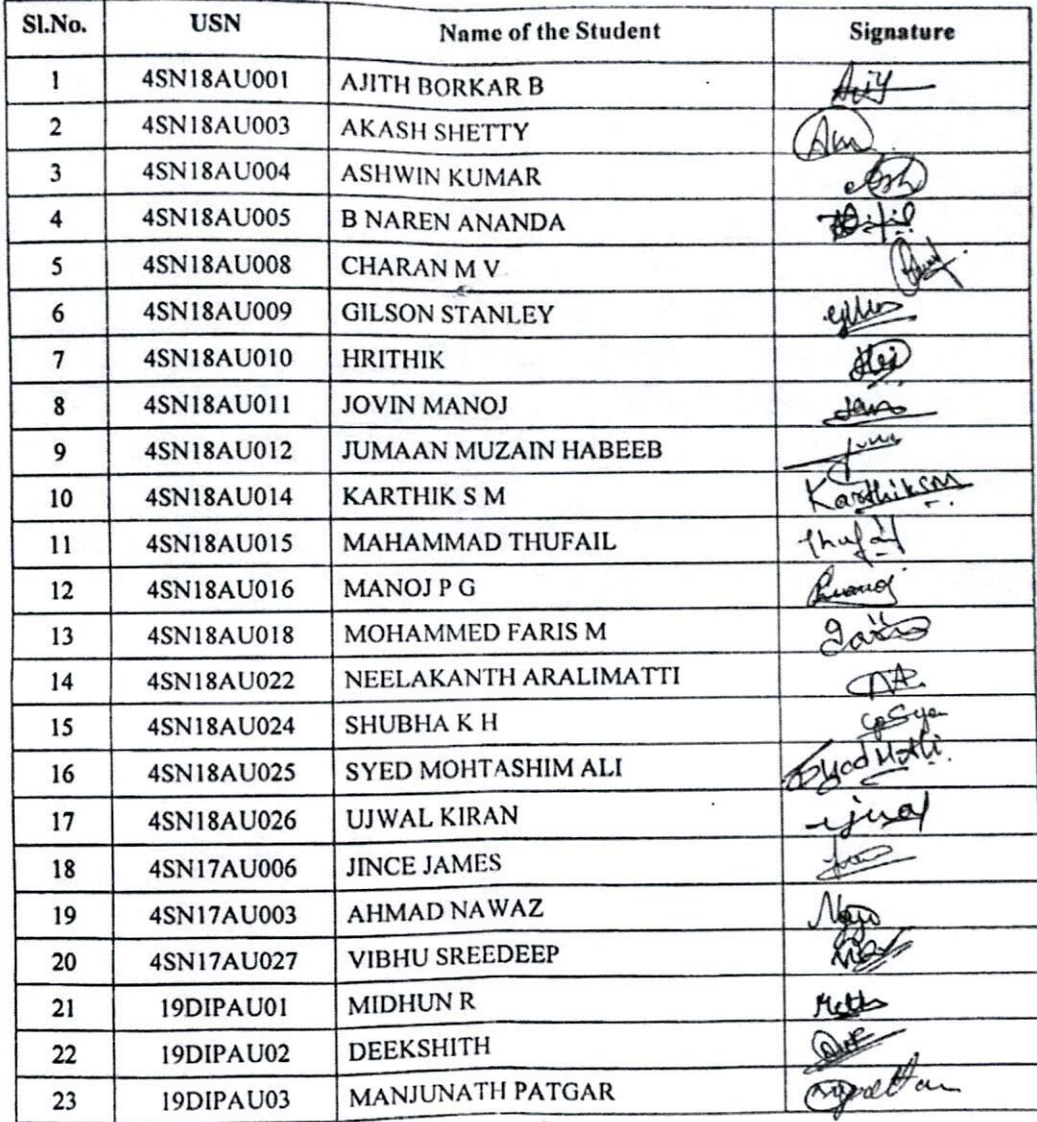 Sl.No. USN Name of the Student Signature
1 4SN18AU001 AJITH BORKAR B
2 4SN18AU003 AKASH SHETTY
3 4SN18AU004 ASHWIN KUMAR
4 4SN18AU005 B NAREN ANANDA
5 4SN18AU008 CHARAN M V
6 4SN18AU009 GILSON STANLEY
7 4SN18AU010 HRITHIK
8 4SN18AU011 JOVIN MANOJ
9 4SN18AU012 JUMAAN MUZAIN HABEEB
10 4SN18AU014 KARTHIK S M Karthiksm
11 4SN18AU015 MAHAMMAD THUFAIL Thufail
12 4SN18AU016 MANOJ P G
13 4SN18AU018 MOHAMMED FARIS M
14 4SN18AU022 NEELAKANTH ARALIMATTI
15 4SN18AU024 SHUBHA K H
16 4SN18AU025 SYED MOHTASHIM ALI
17 4SN18AU026 UJWAL KIRAN
18 4SN17AU006 JINCE JAMES
19 4SN17AU003 AHMAD NAWAZ
20 4SN17AU027 VIBHU SREEDEEP
21 19DIPAU01 MIDHUN R
22 19DIPAU02 DEEKSHITH
23 19DIPAU03 MANJUNATH PATGAR